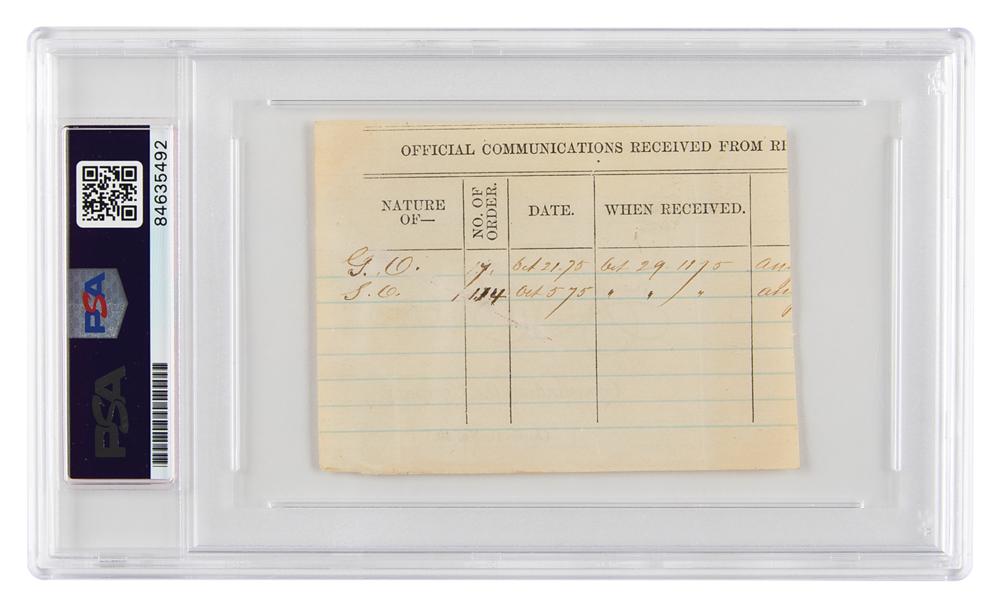 84635492
PSA
PSA
OFFICIAL COMMUNICATIONS RECEIVED FROM
NATURE OF—
NO. OF ORDER.
DATE.
WHEN RECEIVED.
G. O. 17, Oct 21.75 Oct 29 1875
S. O. 114 Oct 5 75 " " "